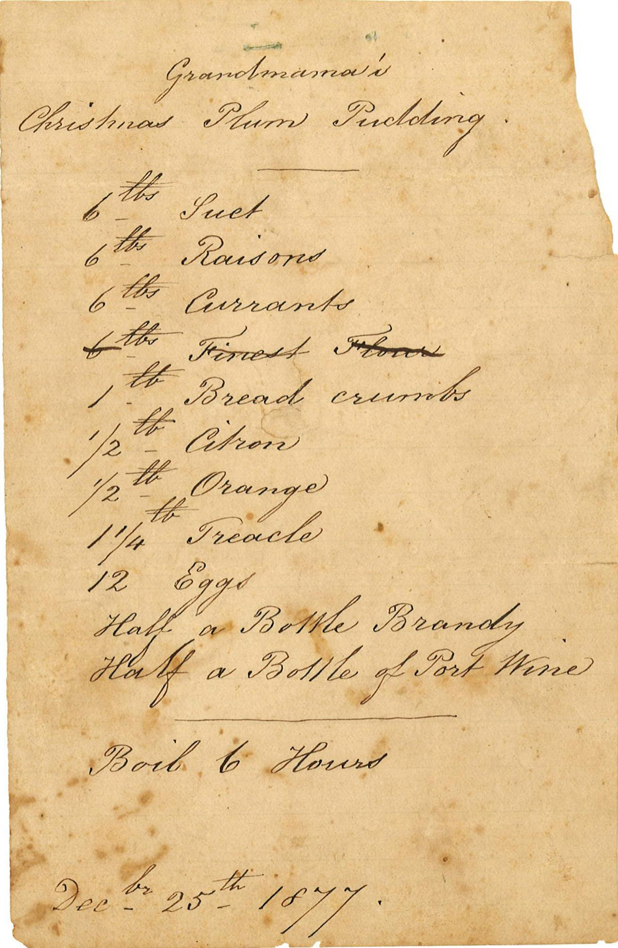 Grandmama's
Christmas Plum Pudding.
6 lbs Suet
6 lbs Raisons
6 lbs Currants
6 lbs Finest Flour
1 lb Bread crumbs
1/2 lb Citron
1/2 lb Orange
1 1/4 lb Treacle
12 Eggs
Half a Bottle Brandy
Half a Bottle of Port Wine
Boil 6 Hours
Decbr 25th 1877.